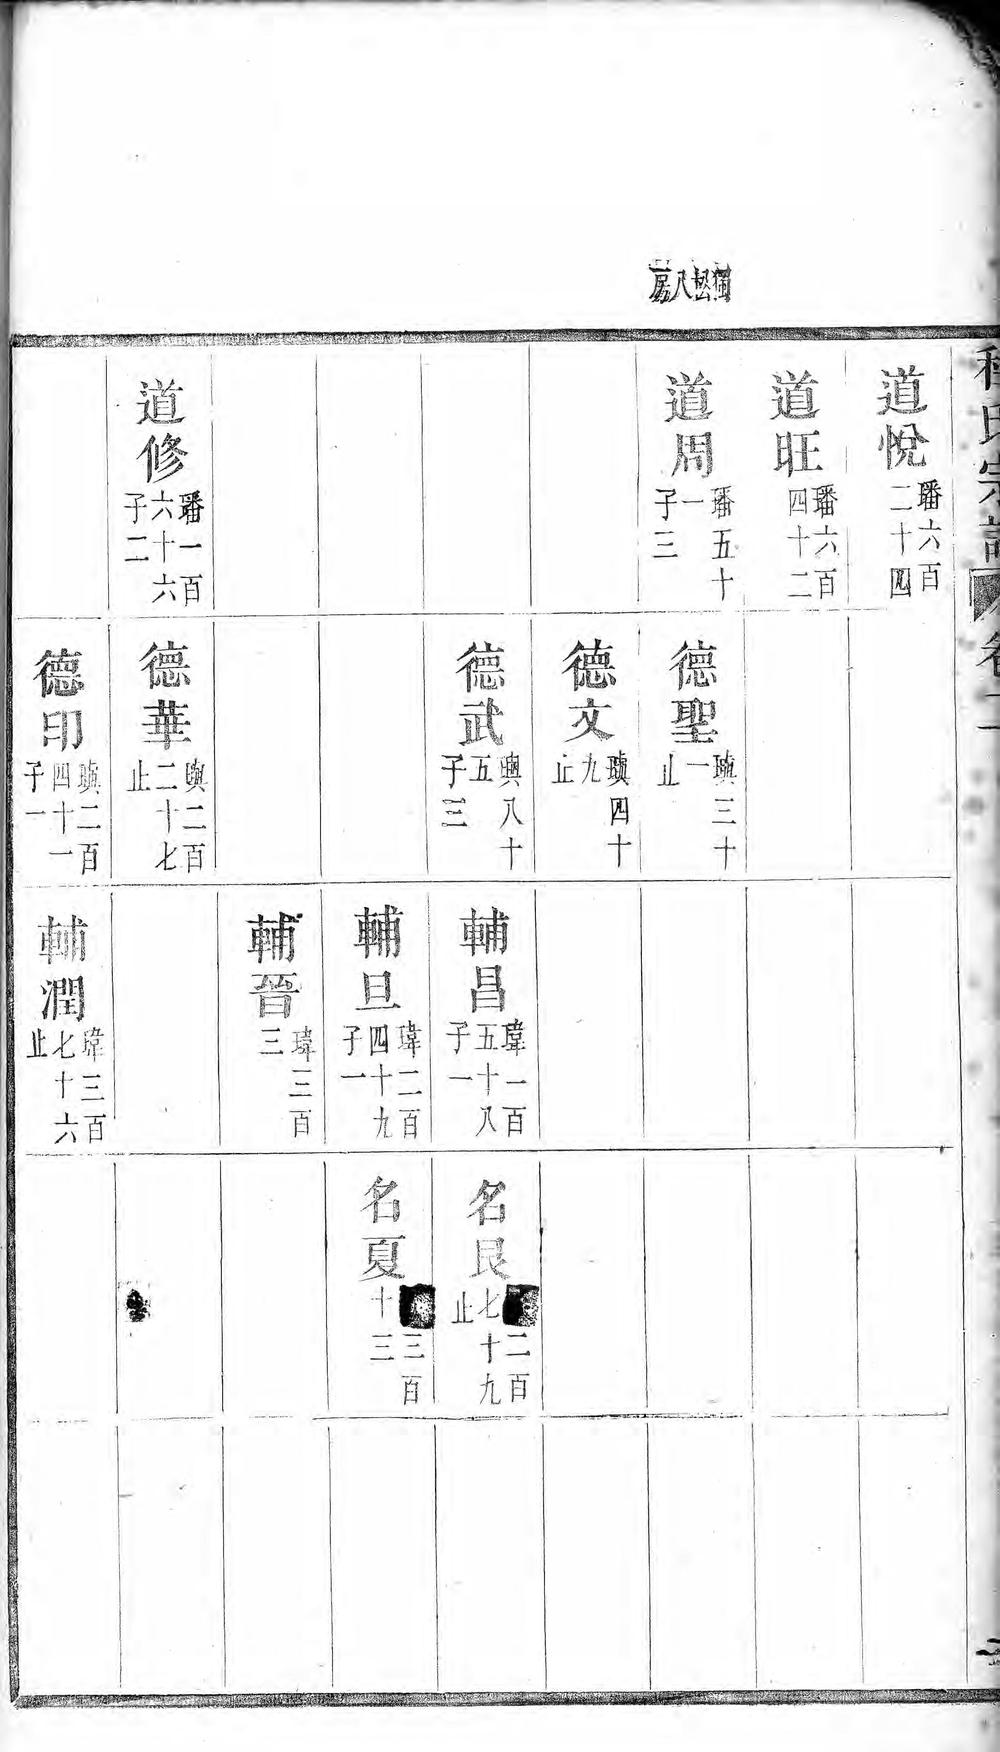 獨松八房
道悅
璠六百
二十四
道旺
璠六百
四十二
道周
璠五十
一
子三
道修
璠一百
六十六
子二
德聖
璵三十
一
止
德文
璵四十
九
止
德武
璵八十
五
子三
德華
璵二百
二十七
止
德印
璵二百
四十一
子一
輔昌
瑋一百
五十八
子一
輔旦
瑋二百
四十九
子一
輔晉
瑋三百
三
輔潤
瑋三百
七十六
止
名艮
二百
七十九
止
名夏
三百
十三
氏宗譜
卷二